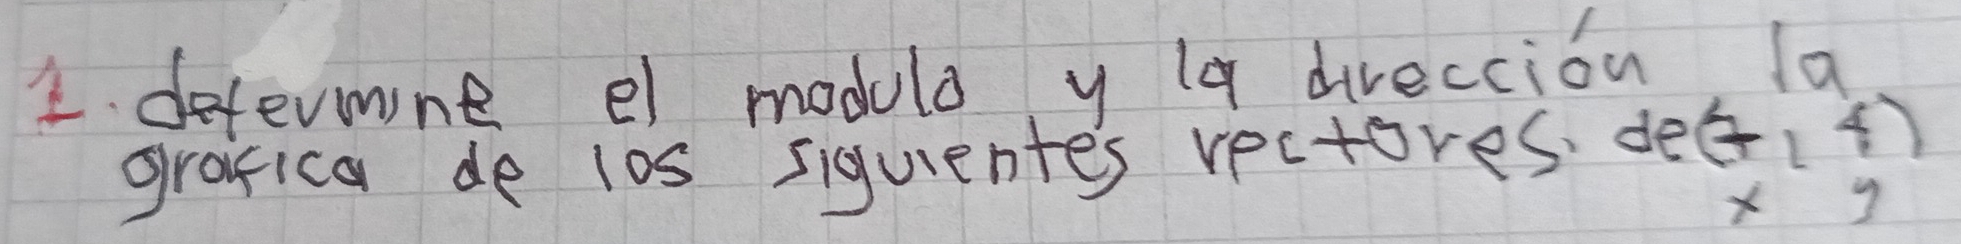 1. determine el modulo y la dirección la
grafica de los siguientes vectores. de(+, +)
x y